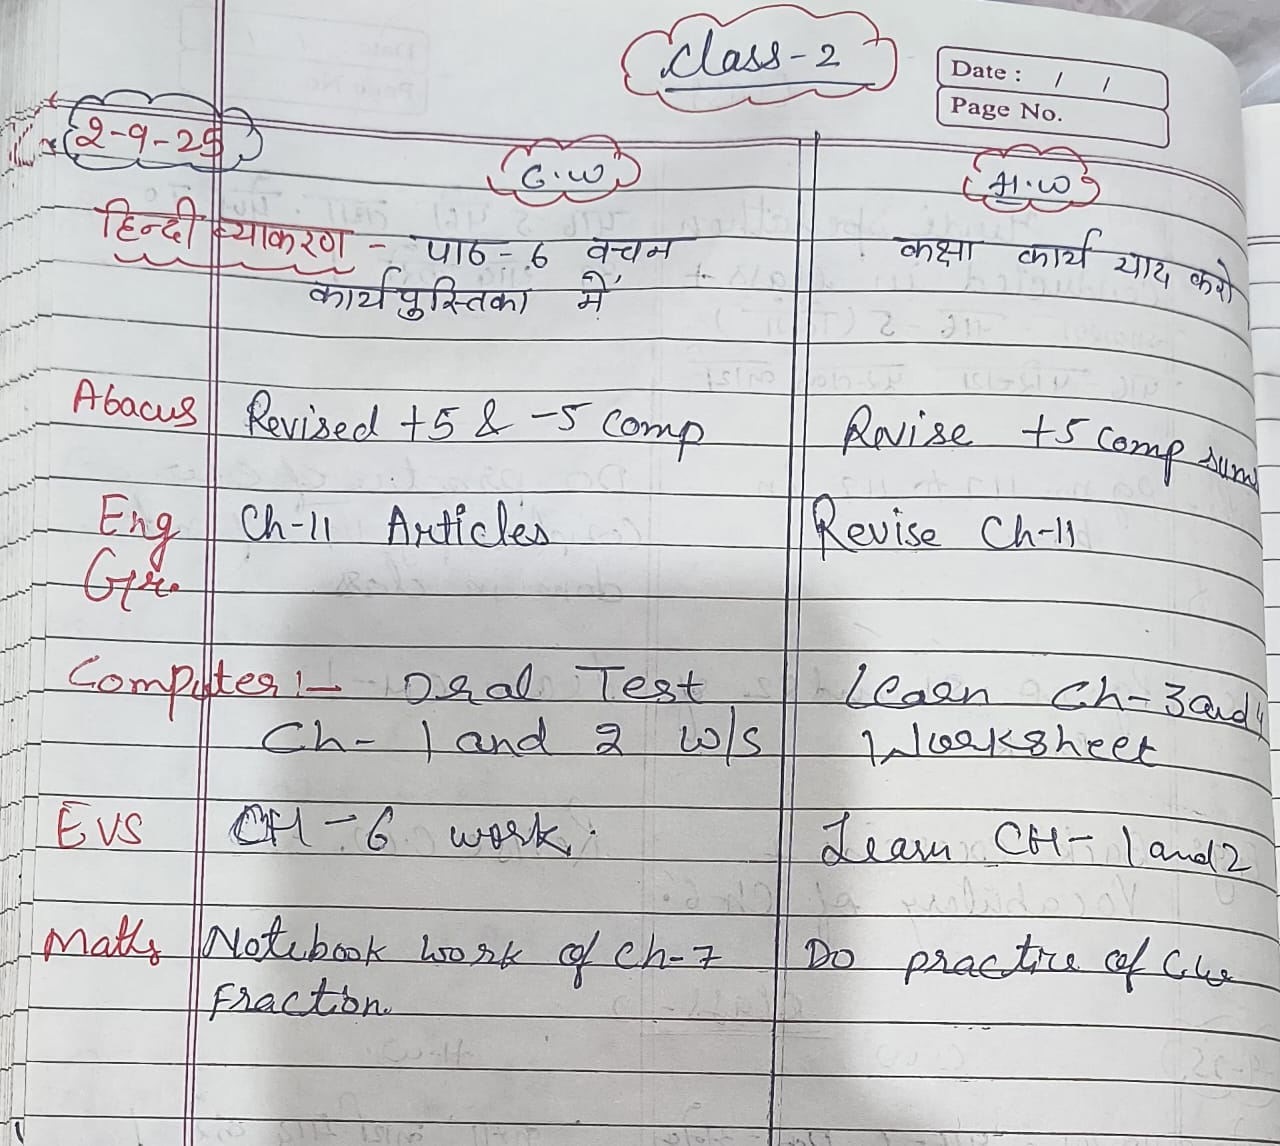 Class-2
Date : / /
Page No.
2-9-25
C.W
H.W
हिन्दी व्याकरण - पाठ-6 वचन
कक्षा कार्य याद करो
कार्य पुस्तिका में
Abacus Revised +5 & -5 comp
Revise +5 comp sums
Eng Ch-11 Articles
Revise Ch-11
Gr.
Computer :- Oral Test
Learn Ch-3 and 4
Ch-1 and 2 w/s
Worksheet
EVS CH-6 work.
Learn CH-1 and 2
Maths Notebook work of Ch-7
Do practice of C.W
Fraction.